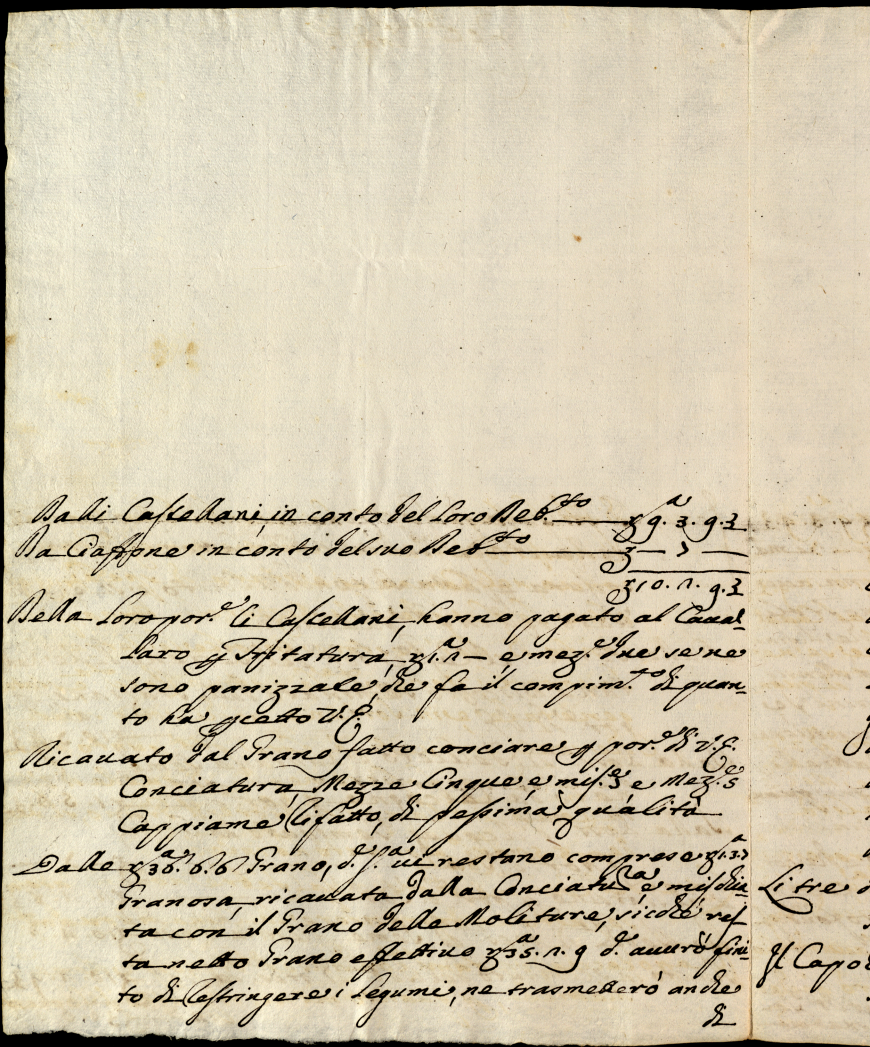 Dalli Castellani in conto del Loro Deb.to — 9. 3. 9. 3
Da Ciaffone in conto del suo Deb.to — 1 —
10. 1. 9. 3
Della Loro por.e li Castellani, hanno pagato al Caual-
laro Tritatura, 1. 1 — e mez.e due se ne
sono panizzate, che fa il compim.to di quan-
to ha V. E.
Ricauato dal Grano fatto conciare p por.e di V. E.
Conciatura, Mezze Cinque, e mis.e 3 e Mez.e 5
Cappiame Rifatto, di pessima qualità
Dalle 36. 6. 6 Grano, vi restano comprese 1. 3. 7
Granosa, ricauata dalla Conciatu.ra e mischia-
ta con il Grano delle Moliture, sicchè res-
ta netto Grano effettiuo 35. 2. 9 d. auurò fini-
to di restringere i Legumi, ne trasmetterò anche
di
Li tre
Il Capo